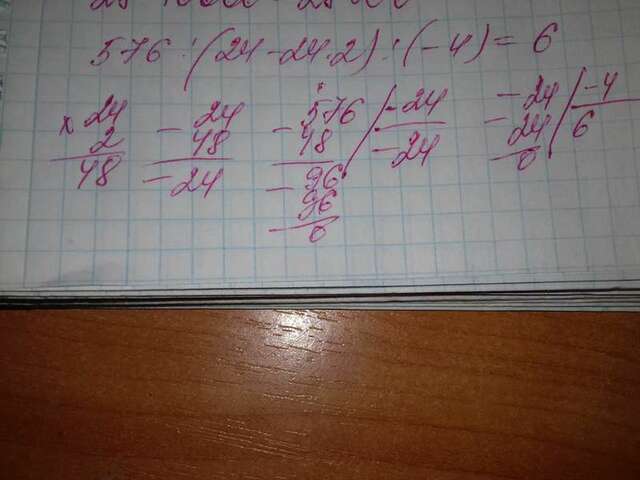 576:(24-24·2):(-4)=6
× 24
2
48
- 24
48
- 24
- 576 | -24
48 | -24
- 96
96
0
- -24 | -4
-24 | 6
0